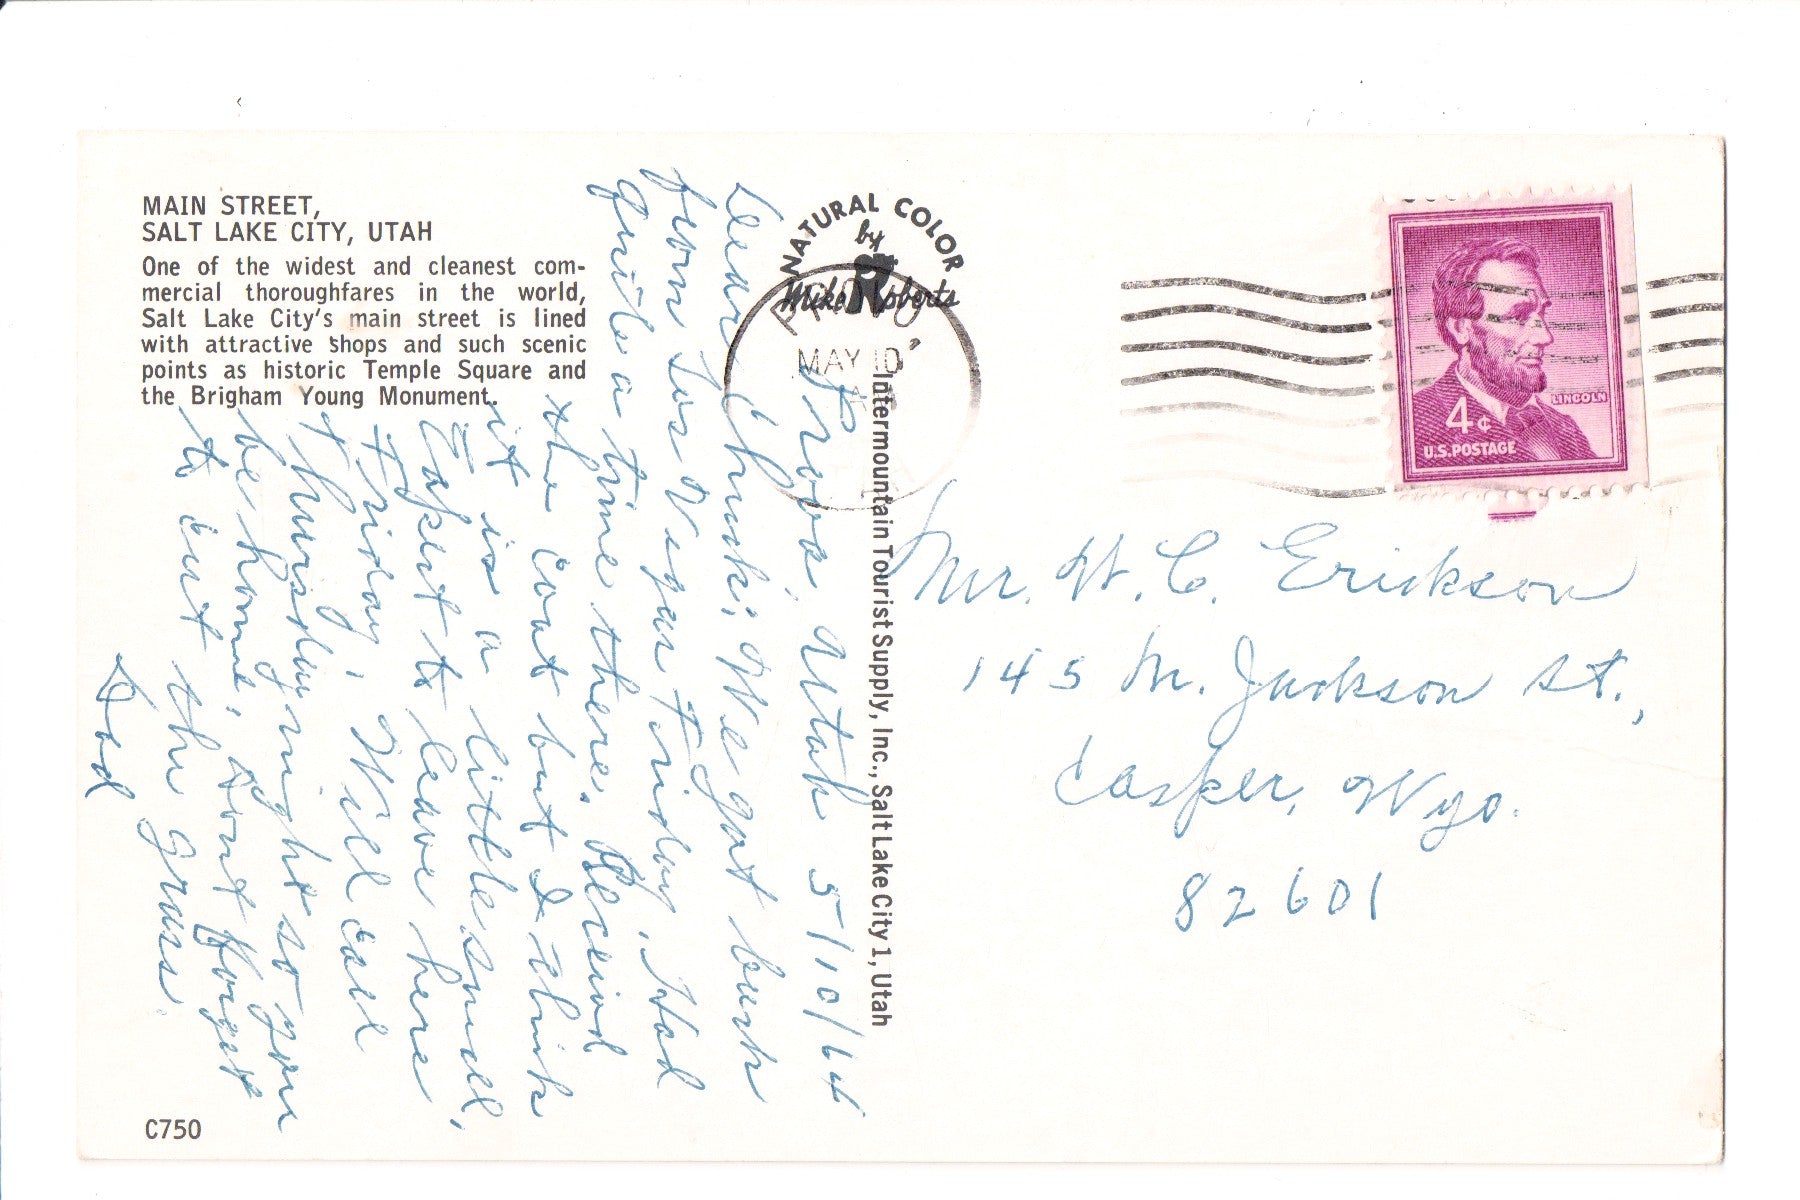 MAIN STREET,
SALT LAKE CITY, UTAH
One of the widest and cleanest com-
mercial thoroughfares in the world,
Salt Lake City's main street is lined
with attractive shops and such scenic
points as historic Temple Square and
the Brigham Young Monument.
C750
NATURAL COLOR
by
Mike Roberts
Intermountain Tourist Supply, Inc., Salt Lake City 1, Utah
MAY 10
4¢
LINCOLN
U.S. POSTAGE
Provo, Utah 5/10/64
Dear Chuck; We got back
from Las Vegas Friday, Had
quite a time there. Received
the coat but I think
it is a little small,
Expect to leave here
Friday, Will call
Thursday night so you
be home, Dont forget
to cut the grass.
Dad
Mr. W. C. Erickson
145 N. Jackson St.,
Casper, Wyo.
82601